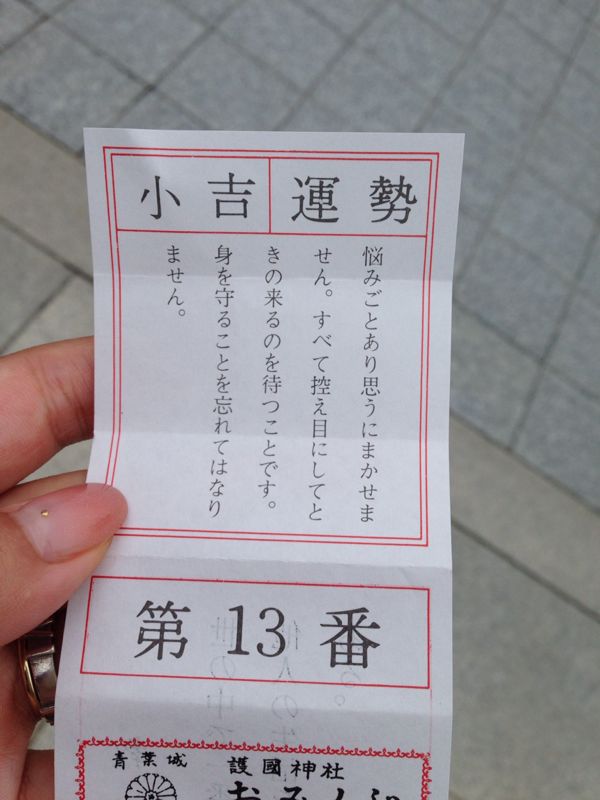 小吉 運勢
悩みごとあり思うにまかせま
せん。すべて控え目にしてと
きの来るのを待つことです。
身を守ることを忘れてはなり
ません。
第13番
青葉城
護國神社